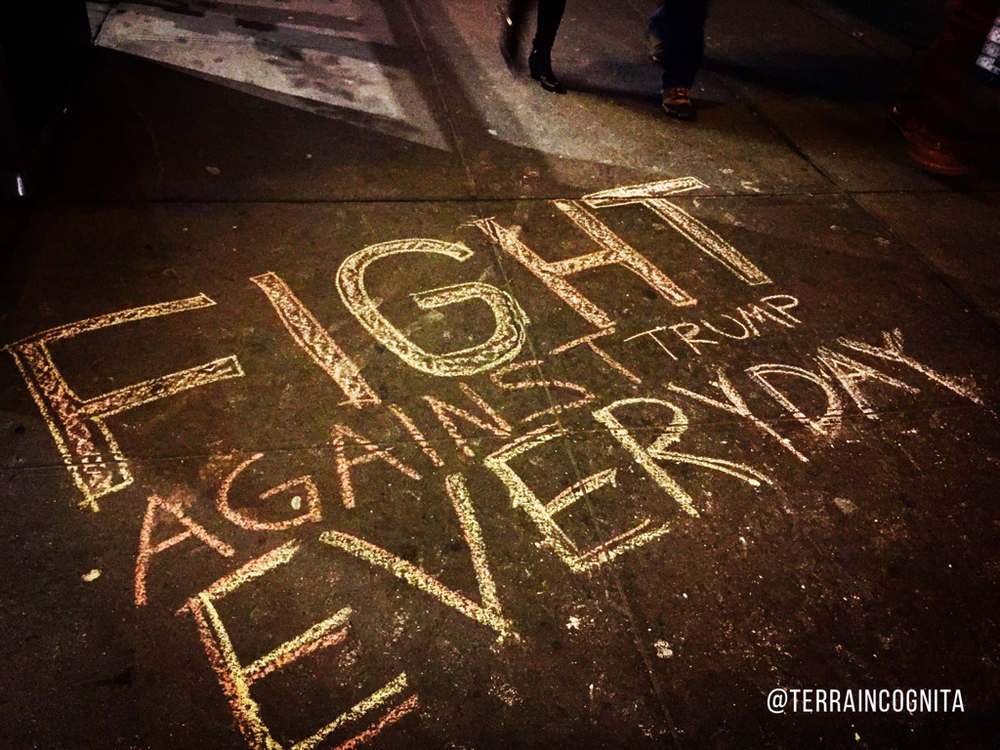 FIGHT
AGAINST TRUMP
EVERYDAY
@TERRAINCOGNITA